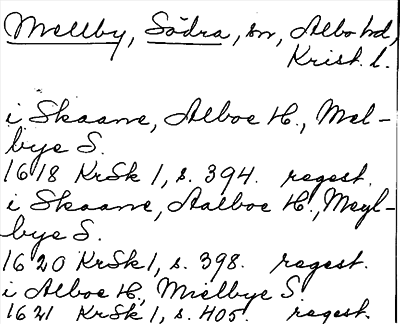 Mellby, Södra, sn, Albo hd,
Krist. l.
i Skaane, Alboe H., Mel-
bye S.
1618 KrSk 1, s. 394. regest.
i Skaane, Aalboe H., Meyl-
bye S.
1620 KrSk 1, s. 398. regest.
i Alboe H, Mielbye S.
1621 KrSk 1, s. 405. regest.